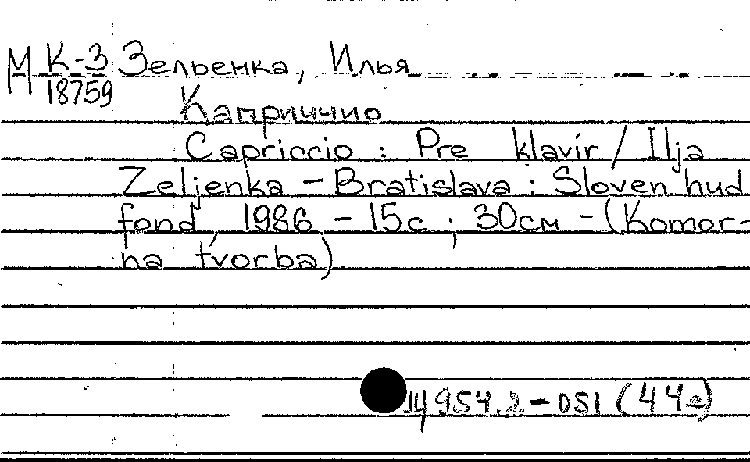 М К-3 Зельенка, Илья
18759
Каприччио
Capriccio : Pre klavír / Ilja
Zeljenka – Bratislava : Sloven hud
fond, 1986 – 15с ; 30см – (Komor-
na tvorba)
14954.2 – 051 (44г)